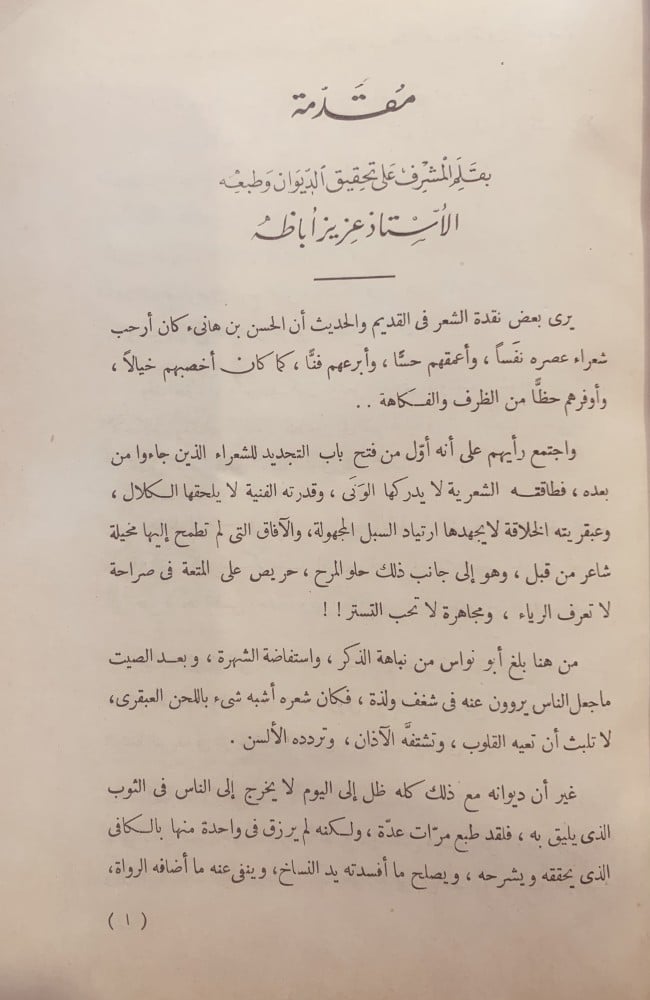 مُقَدّمة
بقَلَمِ المُشرِف عَلى تحقيق الدّيوَان وَطبعِه
الأُسْتاذ عزيز أباظه
يرى بعض نقدة الشعر فى القديم والحديث أن الحسن بن هانىء كان أرحب
شعراء عصره نفَساً ، وأعمقهم حسًّا ، وأبرعهم فنًّا ، كما كان أخصبهم خيالاً ،
وأوفرهم حظًّا من الظرف والفكاهة . .
واجتمع رأيهم على أنه أوّل من فتح باب التجديد للشعراء الذين جاءوا من
بعده ، فطاقته الشعرية لا يدركها الوَنَى ، وقدرته الفنية لا يلحقها الكلال ،
وعبقريته الخلاقة لا يجهدها ارتياد السبل المجهولة، والآفاق التى لم تطمح إليها مخيلة
شاعر من قبل ، وهو إلى جانب ذلك حلو المرح ، حريص على المتعة فى صراحة
لا تعرف الرياء ، ومجاهرة لا تحب التستر ! !
من هنا بلغ أبو نواس من نباهة الذكر ، واستفاضة الشهرة ، وبعد الصيت
ما جعل الناس يروون عنه فى شغف ولذة ، فكان شعره أشبه شىء باللحن العبقرى،
لا تلبث أن تعيه القلوب ، وتشتفَّه الآذان ، وتردده الألسن .
غير أن ديوانه مع ذلك كله ظل إلى اليوم لا يخرج إلى الناس فى الثوب
الذى يليق به ، فلقد طبع مرّات عدّة ، ولكنه لم يرزق فى واحدة منها بالكافى
الذى يحققه ويشرحه ، ويصلح ما أفسدته يد النساخ، وينفى عنه ما أضافه الرواة،
( ١ )